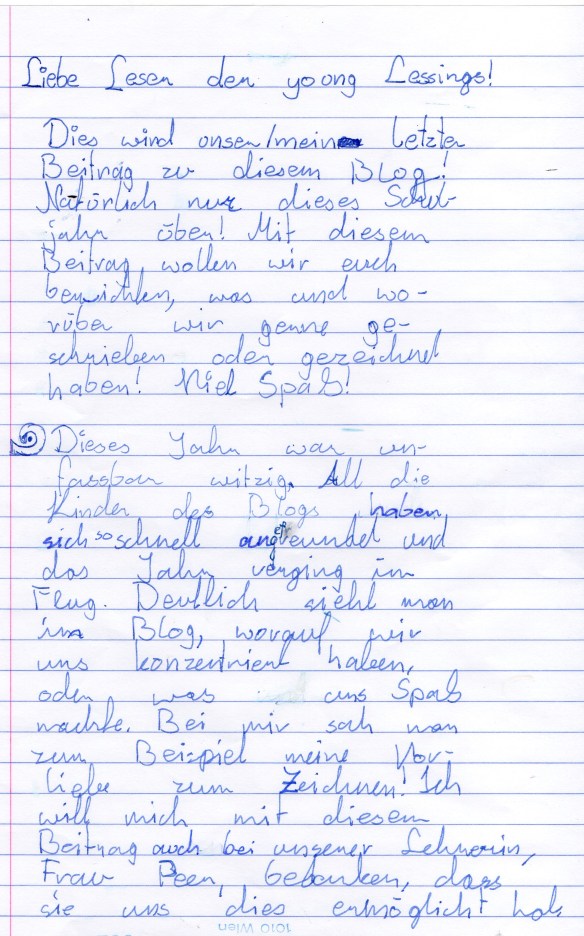 Liebe Leser der young Lessings!
Dies wird unser/mein letzter
Beitrag zu diesem Blog!
Natürlich nur dieses Schul-
jahr über! Mit diesem
Beitrag wollen wir euch
berichten, was und wo-
rüber wir gerne ge-
schrieben oder gezeichnet
haben! Viel Spaß!
Dieses Jahr war un-
fassbar witzig. All die
Kinder des Blogs haben
sich so schnell angefreundet und
das Jahr verging im
Flug. Deutlich sieht man
im Blog, worauf wir
uns konzentriert haben,
oder was uns Spaß
machte. Bei mir sah man
zum Beispiel meine Vor-
liebe zum Zeichnen! Ich
will mich mit diesem
Beitrag auch bei unserer Lehrerin,
Frau Peer, bedanken, dass
sie uns dies ermöglicht hat
1010 Wien